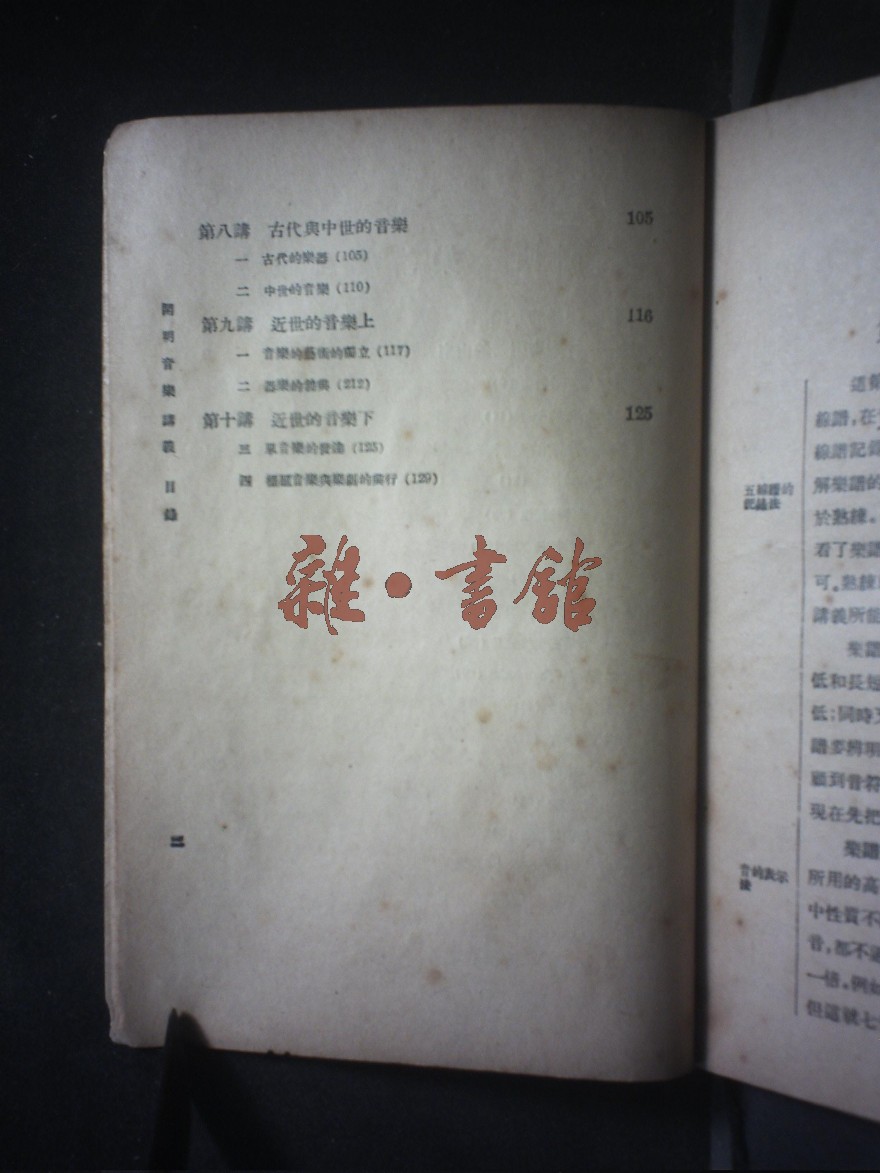 第八講 古代與中世的音樂 105
一 古代的樂器 (105)
二 中世的音樂 (110)
第九講 近世的音樂上 116
一 音樂的藝術的獨立 (117)
二 器樂的勃興 (212)
第十講 近世的音樂下 125
三 單音樂的發達 (125)
四 標題音樂與樂劇的廣行 (129)
開明音樂講義 目錄
三
雜·書館
五線譜的
記錄法
線譜,在
線譜記錄
解樂譜的
於熟練。
看了樂譜
可。熟練
講義所能
樂譜
低和長短
低;同時
譜要辨明
顧到音符
現在先把
樂譜
音的表示
法
所用的高
中性質不
音,都不
一倍。例如
但這號七